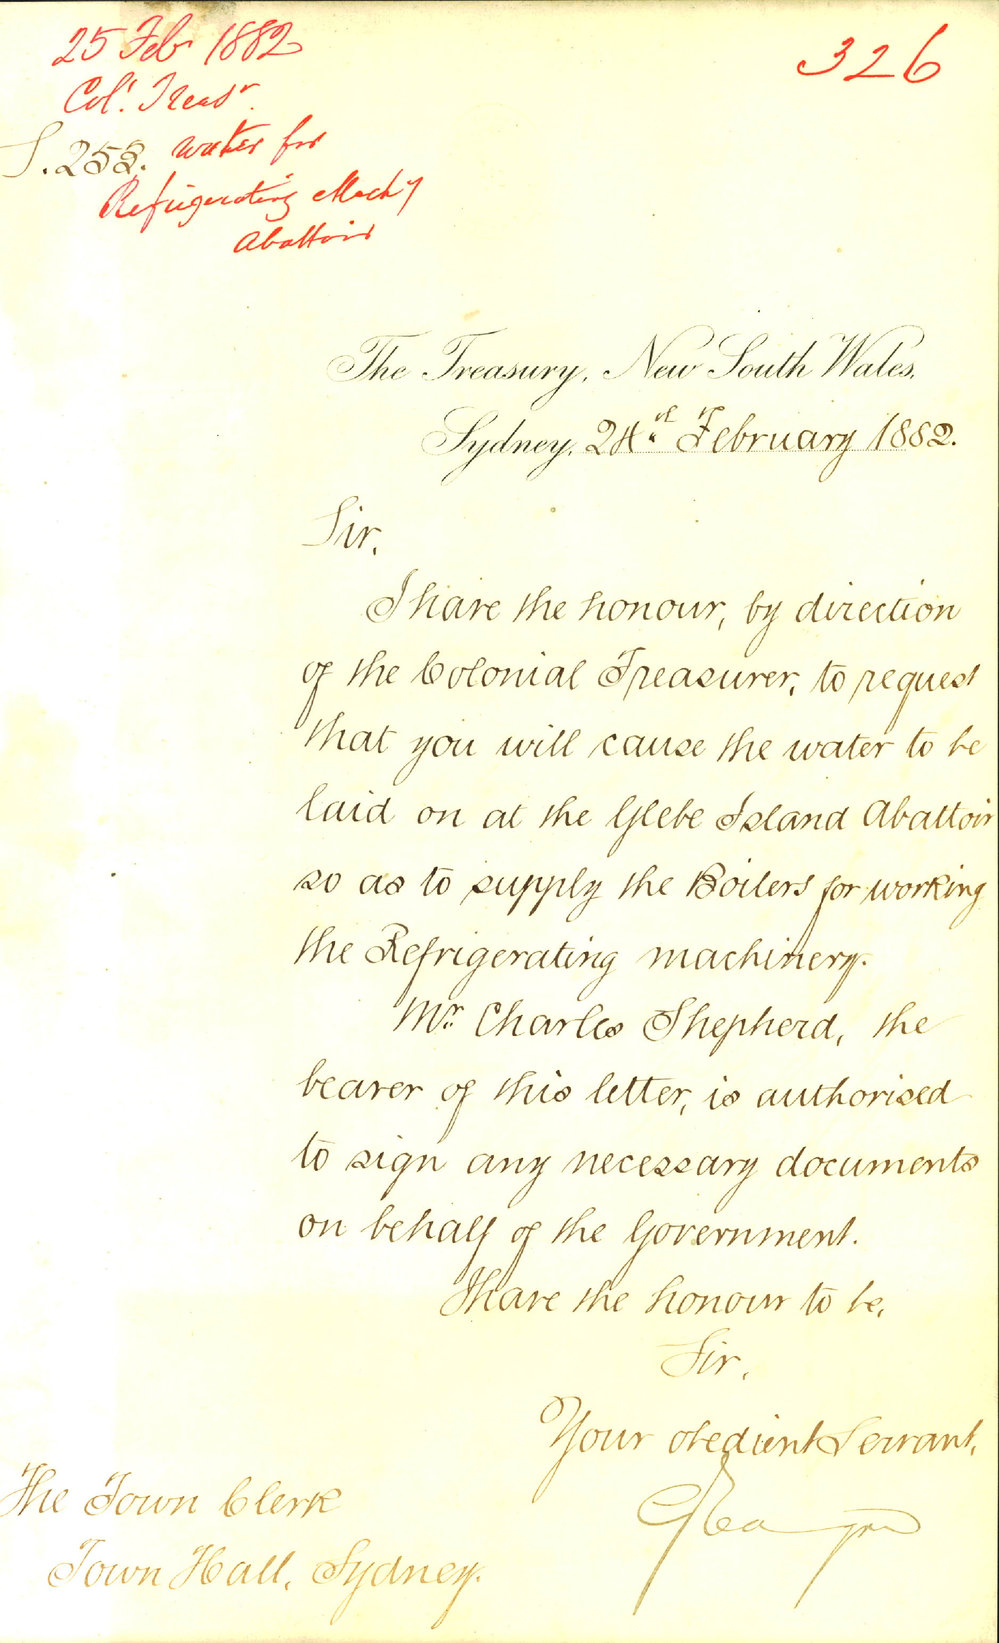 25 Feb 1882
326
Col! Treasr.
S. 253. Water for
Refrigerating Mach'y
Abattoir
The Treasury, New South Wales,
Sydney, 24th February 1882.
Sir,
I have the honour, by direction
of the Colonial Treasurer, to request
that you will cause the water to be
laid on at the Glebe Island Abattoir
so as to supply the Boilers for working
the Refrigerating machinery.
Mr. Charles Shepherd, the
bearer of this letter, is authorised
to sign any necessary documents
on behalf of the Government.
I have the honour to be,
Sir,
Your obedient Servant,
The Town Clerk
Town Hall, Sydney.